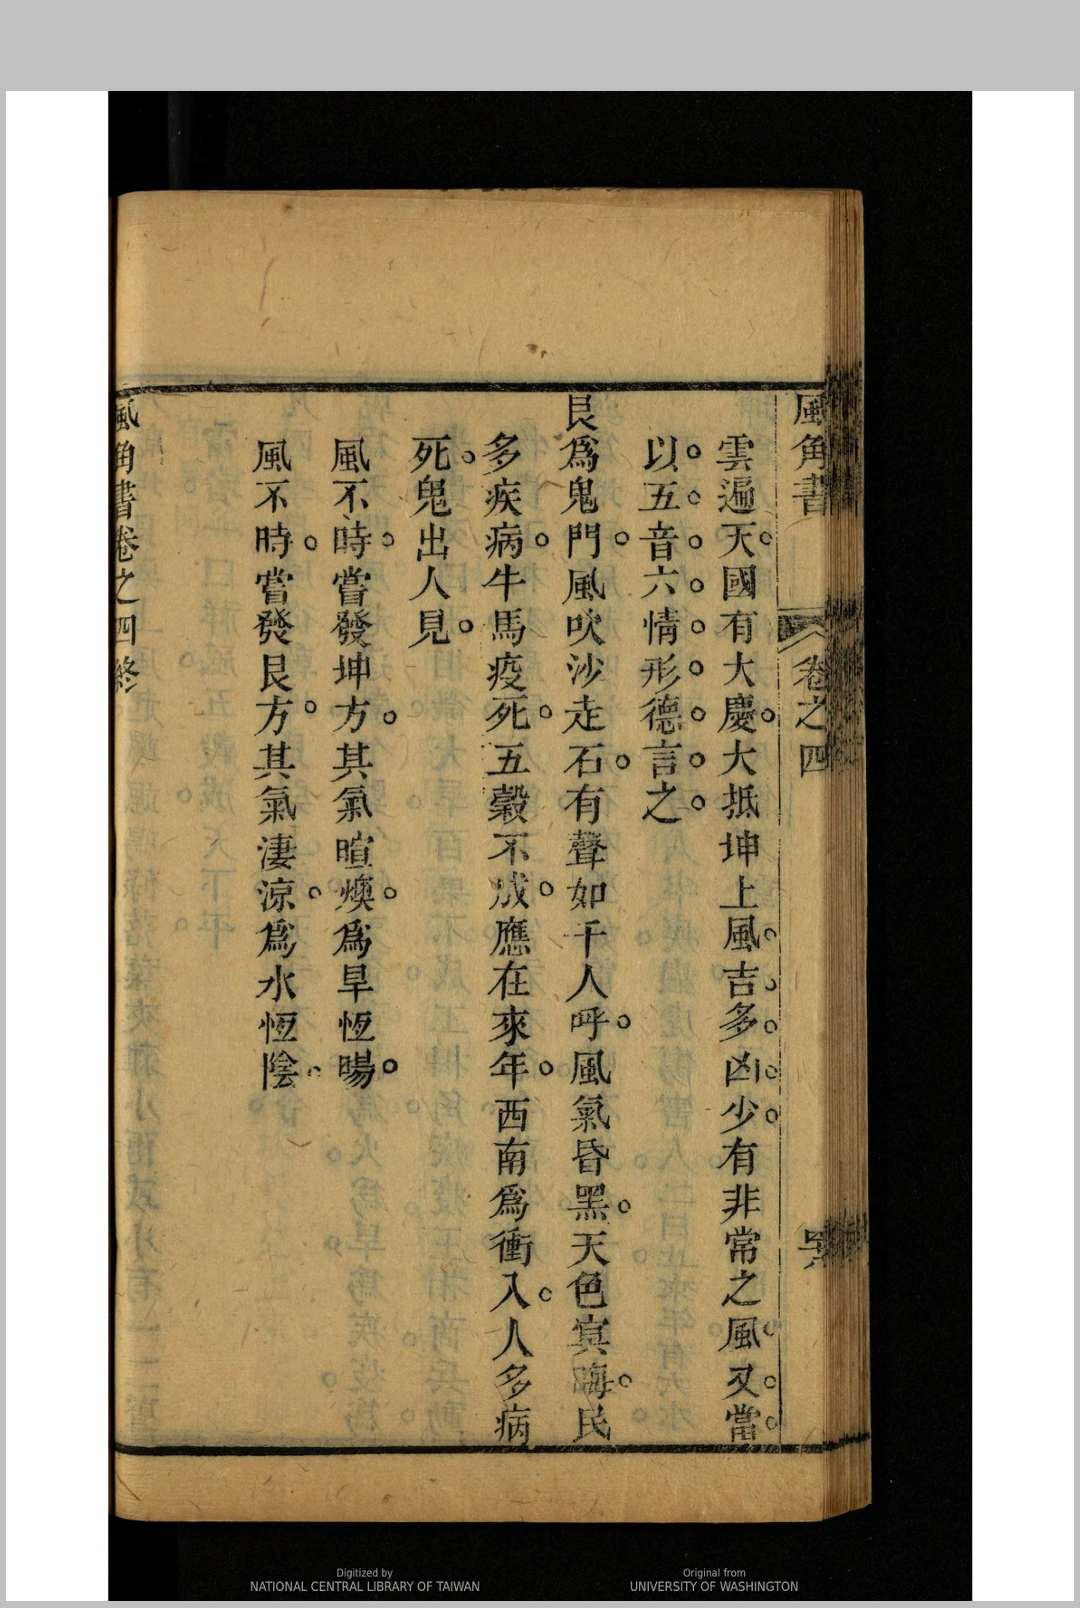 風角書
卷之四
雲遍天國有大慶大抵坤上風吉多凶少有非常之風又當
以五音六情形德言之
艮爲鬼門風吹沙走石有聲如千人呼風氣昏黑天色㝠晦民
多疾病牛馬疫死五穀不成應在來年西南爲衝入人多病
死鬼出人見
風不時嘗發坤方其氣暄燠爲旱恆暘
風不時嘗發艮方其氣淒涼爲水恆陰
風角書卷之四終
Digitized by
NATIONAL CENTRAL LIBRARY OF TAIWAN
Original from
UNIVERSITY OF WASHINGTON